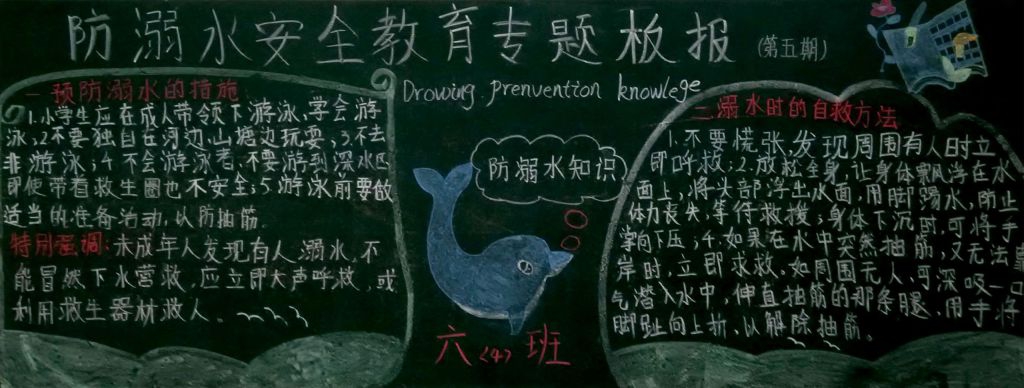 防溺水安全教育专题板报(第五期)
Drowing prenvention knowlege
一.预防溺水的措施
1.小学生应在成人带领下游泳,学会游
泳;2.不要独自在河边、山塘边玩耍;3.不去
非游泳;4.不会游泳者,不要游到深水区
即使带着救生圈也不安全;5.游泳前要做
适当的准备活动,以防抽筋.
特别强调:未成年人发现有人溺水,不
能冒然下水营救,应立即大声呼救,或
利用救生器材救人.
防溺水知识
六〈4〉班
二.溺水时的自救方法
1.不要慌张,发现周围有人时立
即呼救;2.放松全身,让身体飘浮在水
面上,将头部浮出水面,用脚踢水,防止
体力丧失,等待救援;身体下沉时,可将手
掌向下压;4.如果在水中突然抽筋,又无法靠
岸时,立即求救.如周围无人,可深吸一口
气潜入水中,伸直抽筋的那条腿,用手将
脚趾向上扳,以解除抽筋.